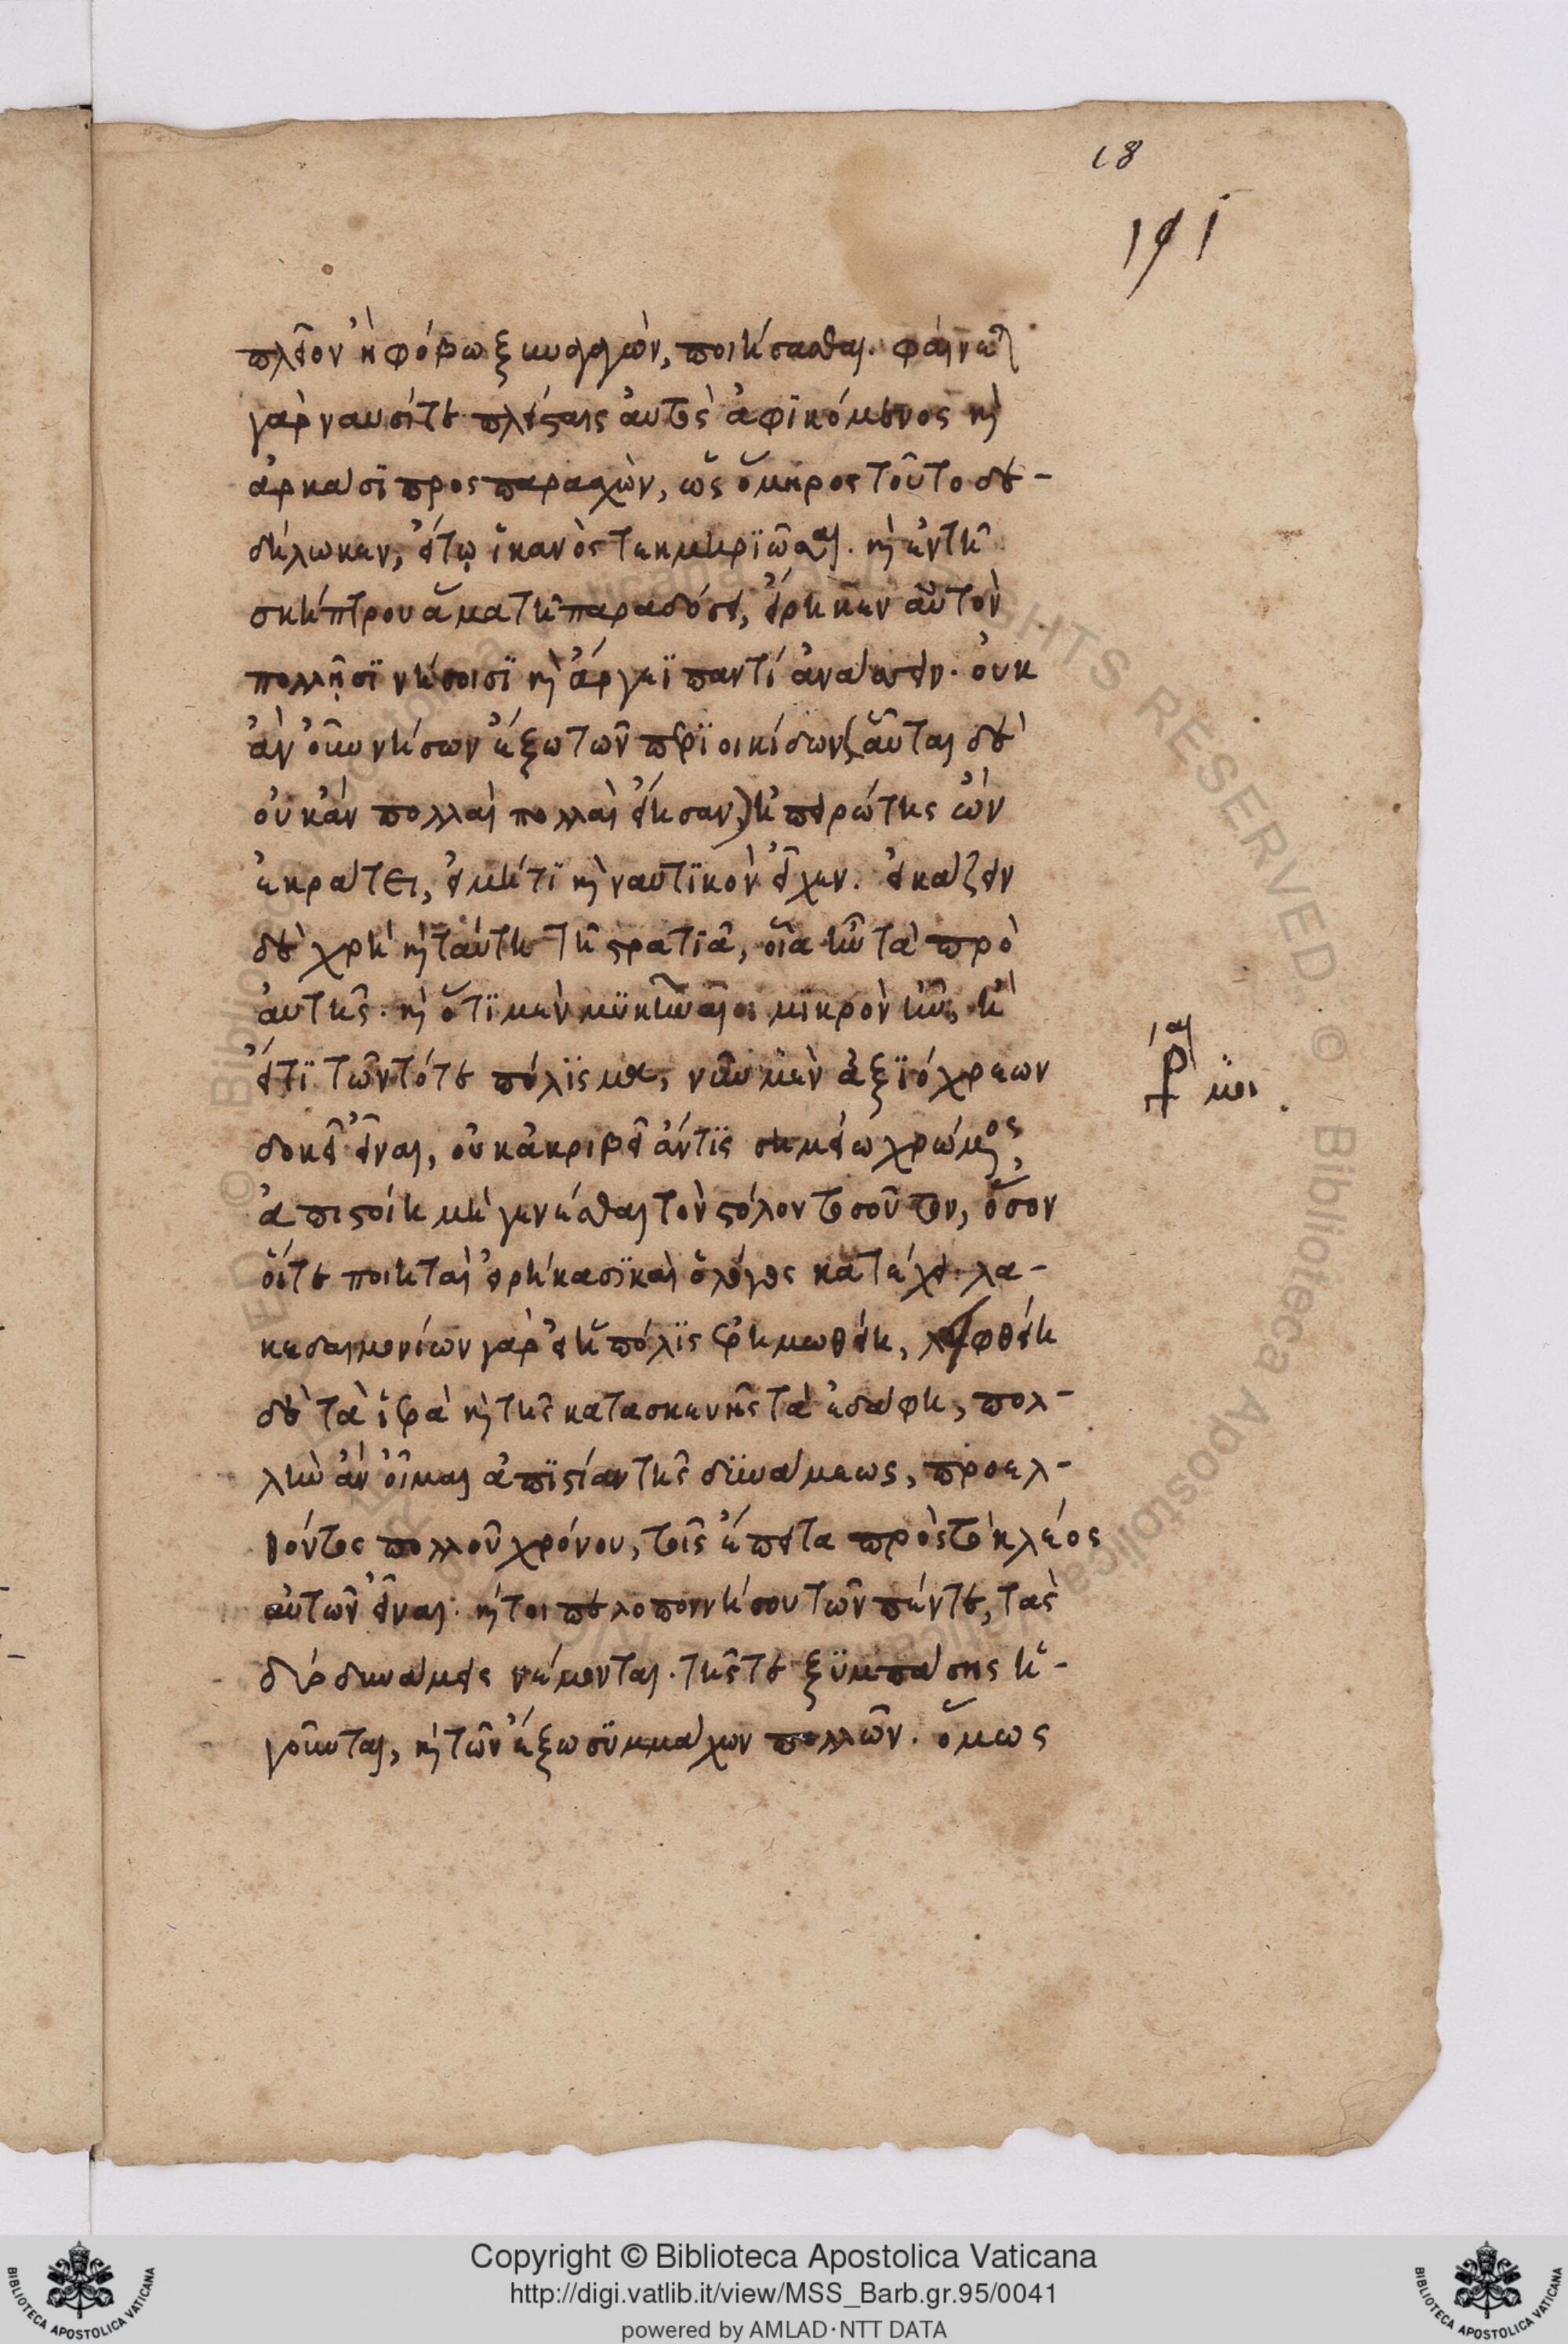 18
191
πλεῖον ἢ φόβω ξυναγαγὼν, ποιήσασθαι. φαίνεται
γὰρ ναυσίτε πλείσταις ἀυτὸς ἀφϊκόμενος κὴ
ἀρκάσϊ προς παρασχὼν, ὡς ὅμηρος τοῦτο δε-
δήλωκεν, εἴτῳ ἱκανὸς τεκμηρϊῶσαι. κὴ ἐν τῆ
σκήπτρου ἅμα τῆ παραδόσει, εἴρηκεν αὐτὸν
πολλῇσϊ νήσοισϊ κὴ ἄργεϊ παντί ἀνάσσειν. ὀυκ
ἂν ὀῦν νήσων ἔξω τῶν περϊοικίδων (ἅυται δὲ
ὀυκ ἂν πολλαὶ πολλαὶ εἴησαν) ἠπειρώτης ὢν
ἐκράτει, ἐιμήτϊ κὴ ναυτϊκὸν εἶχεν. ἐικάζειν
δὲ χρὴ κὴ ταύτη τῆ στρατϊᾶ, οἷα ἦν τὰ πρὸ
ἀυτῆς. κὴ ὅτϊ μὲν μϋκῆναι μϊκρὸν ἦν, ἢ
εἴτϊ τῶν τότε πόλϊσμα, νῦν μὲν ἀξϊόχρεων
δοκεῖ εἶναι, οὐκ ἀκριβεῖ ἄν τϊς σημείω χρώμενος,
ἀπιστοίη μὴ γενέσθαι τὸν στόλον τοσοῦτον, ὅσον
ὅίτε ποιηταὶ εἰρήκασϊ καὶ ὁ λόγος κατέχει. λα-
κεδαιμονίων γὰρ εἰ ἡ πόλϊς ἐρημωθείη, λειφθείη
δὲ τὰ ἱερὰ κὴ τῆς κατασκευῆς τὰ ἐδάφη, πολ-
λὴν ἂν ὀῖμαι ἀπϊστίαν τῆς δϋνάμεως, προελ-
θόντος πολλοῦ χρόνου, τοῖς ἔπειτα πρὸς τὸ κλέος
αὐτῶν εἶναι. κήτοι πελοποννήσου τῶν πέντε, τὰς
δύο δυνάμεις νέμονται. τῆς τε ξϋμπάσης ἡ-
γοῦνται, κὴ τῶν ἔξω σϋμμάχων πολλῶν. ὅμως
Copyright © Biblioteca Apostolica Vaticana
http://digi.vatlib.it/view/MSS_Barb.gr.95/0041
powered by AMLAD·NTT DATA
BIBLIOTECA APOSTOLICA VATICANA
BIBLIOTECA APOSTOLICA VATICANA